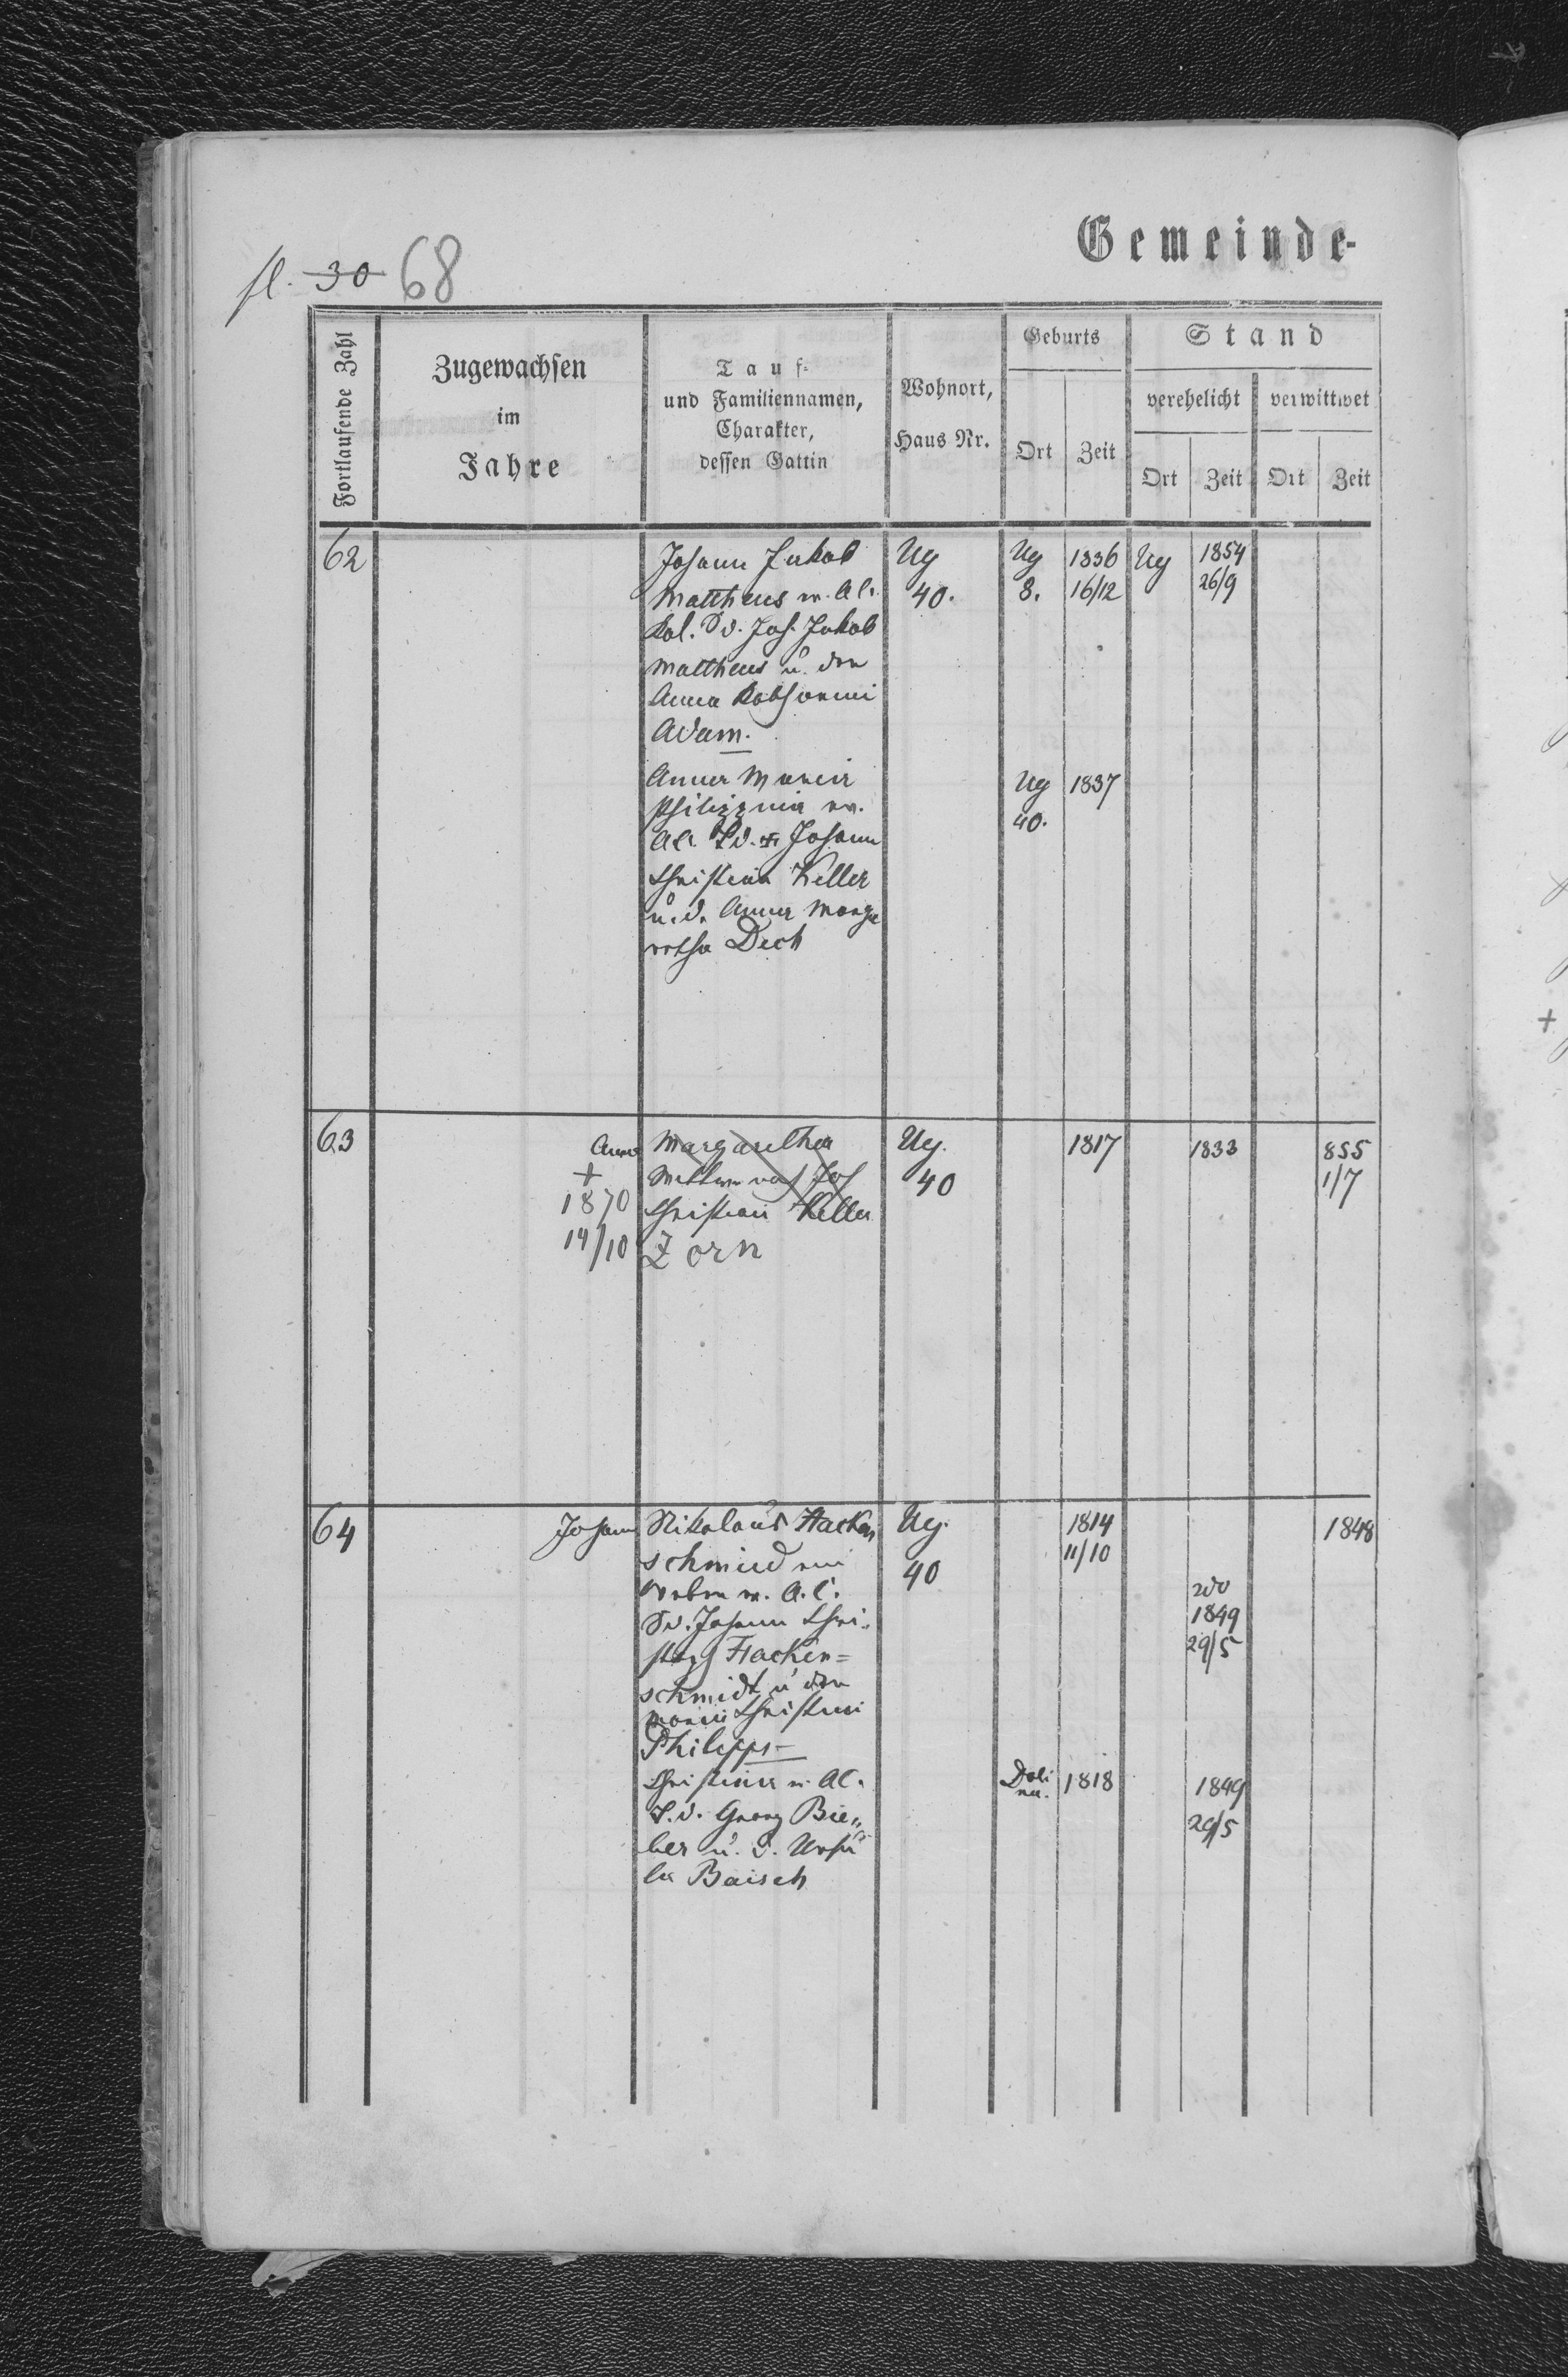 Gemeinde-
fl. 30 68
Fortlaufende Zahl
Zugewachsen
im
Jahre
Tauf-
und Familiennamen,
Charakter,
dessen Gattin
Wohnort,
Haus Nr.
Geburts
Ort Zeit
Stand
verehelicht verwittwet
Ort Zeit Ort Zeit
62 Johann Jakob Ug Ug 1836 Ug 1854
Mattheus 40. 8. 16/12 26/9
Kol. S. d. Joh. Jakob
Mattheus u. der
Anna
Adam.
Anna Maria Ug 1837
Philippina 40.
A. C. T. d. Johann
Christian Keller
u. d. Anna Marga
retha Dech
63 Anna Margaretha Ug. 1817 1833 855
+ Joh 40 1/7
1870 Christian Keller
14/10 Zorn
64 Johann Nikolaus Hacken Ug. 1814 1848
schmied 40 11/10
Weber A. C. 2do
S. d. Johann Chri- 1849
stoph Hacken= 29/5
schmidt u. der
Christina
Philipps-
Christina A. C. Doli 1818 1849
na.
T. d. Georg Bie„ 29/5
ber u. d. Ursu
la Baisch
+